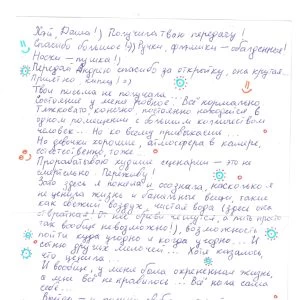 Хэй, Даша!) Получила твою передачу!
Спасибо большое!)) Ручки, фломики - обалденные!
Носки - пушка!)
Передай Андрею спасибо за открытку, она крутая.
Приятно капец! =)
Твои письма не получала.
Состояние у меня ровное. Всё нормально
Тяжковато конечно, постоянно находиться в
одном помещении с большим количеством
человек... Но ко всему привыкаешь...
Но девочки хорошие, атмосфера в камере,
соответственно, тоже.
Прорабатываю худшие сценарии - это не
смертельно. Переживу!
Зато здесь я поняла и осознала, насколько я
не ценила жизнь и банальные вещи, такие
как свежий воздух, чистая вода (здесь она
отвратная! От неё брови чешутся, а пить просто
так вообще невозможно!), возможность
пойти куда угодно и когда угодно... И
сотню других мелочей... Хотя казалось,
что ценила...
И вообще, у меня была охрененная жизнь,
а мне всё не нравилось... Всё ныла сама
себе...